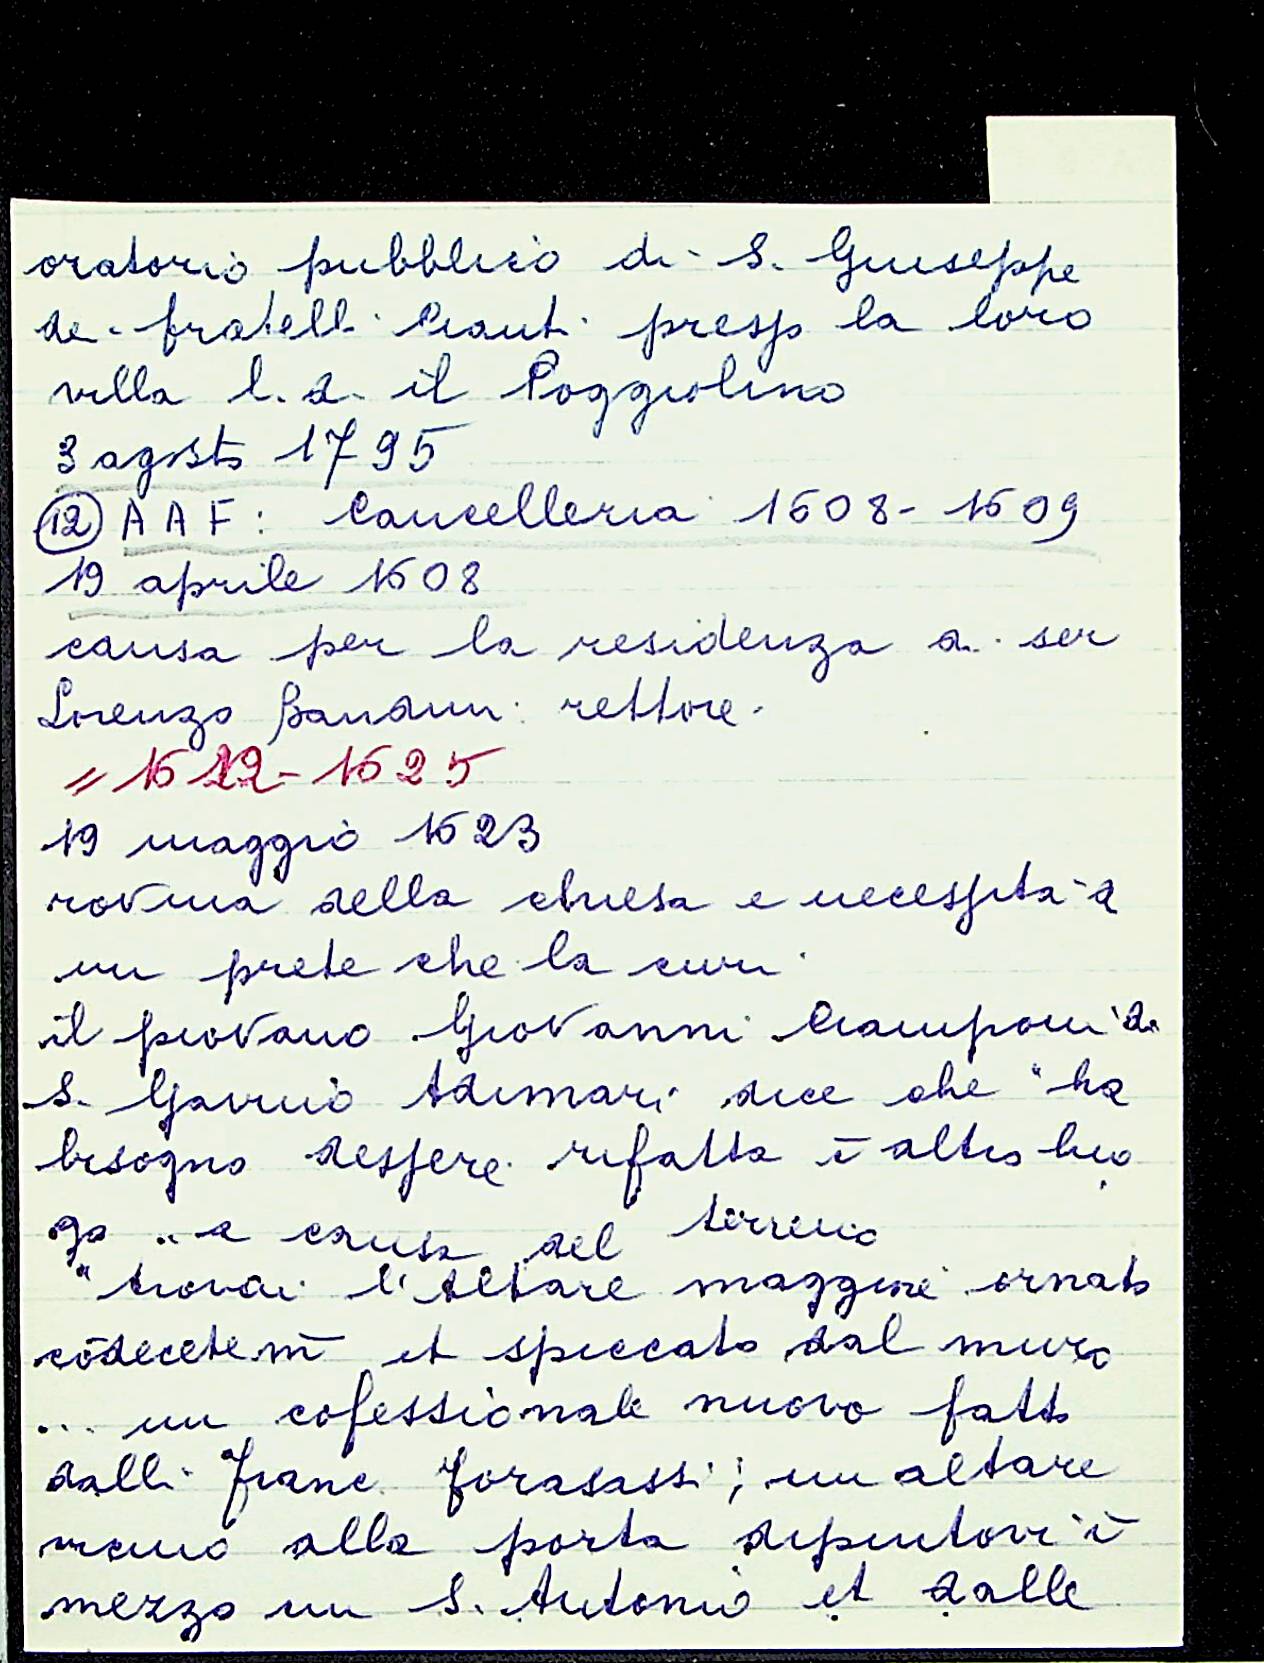 oratorio pubblico di S. Giuseppe
dei fratelli Cianti presso la loro
villa l. d. il Poggiolino
3 agosto 1795
(12) AAF: Cancelleria 1608-1609
19 aprile 1608
causa per la residenza a ser
Lorenzo Bandini rettore.
" 1622-1625
19 maggio 1623
rovina della chiesa e necessità di
un prete che la curi
il piovano Giovanni Ciamponi di
S. Gavino Adimari dice che "ha
bisogno dessere rifatta ī altro luo
go" a causa del terreno
"trovai l'Altare maggiore ornato
cōdecetem̄ et spiccato dal muro
... un cofessionale nuovo fatto
dalli Franc. Forasassi; un altare
vicino alla porta dipintovi ī
mezzo un S. Antonio et dalle